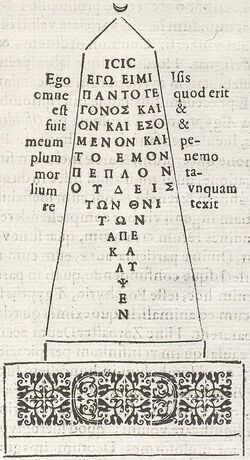 ΙϹΙϹ
Ego ΕΓΩ ΕΙΜΙ Isis
omne ΠΑΝΤΟ ΓΕ quod erit
est ΓΟΝΟΣ ΚΑΙ &
fuit ΟΝ ΚΑΙ ΕΣΟ &
meum ΜΕΝΟΝ ΚΑΙ pe-
plum ΤΟ ΕΜΟΝ nemo
mor ΠΕΠΛΟΝ ta-
lium ΟΥΔΕΙΣ vnquam
re ΤΩΝ ΘΝΙ texit
ΤΩΝ
ΑΠΕ
ΚΑ
ΛΥ
Ψ
Ε
Ν